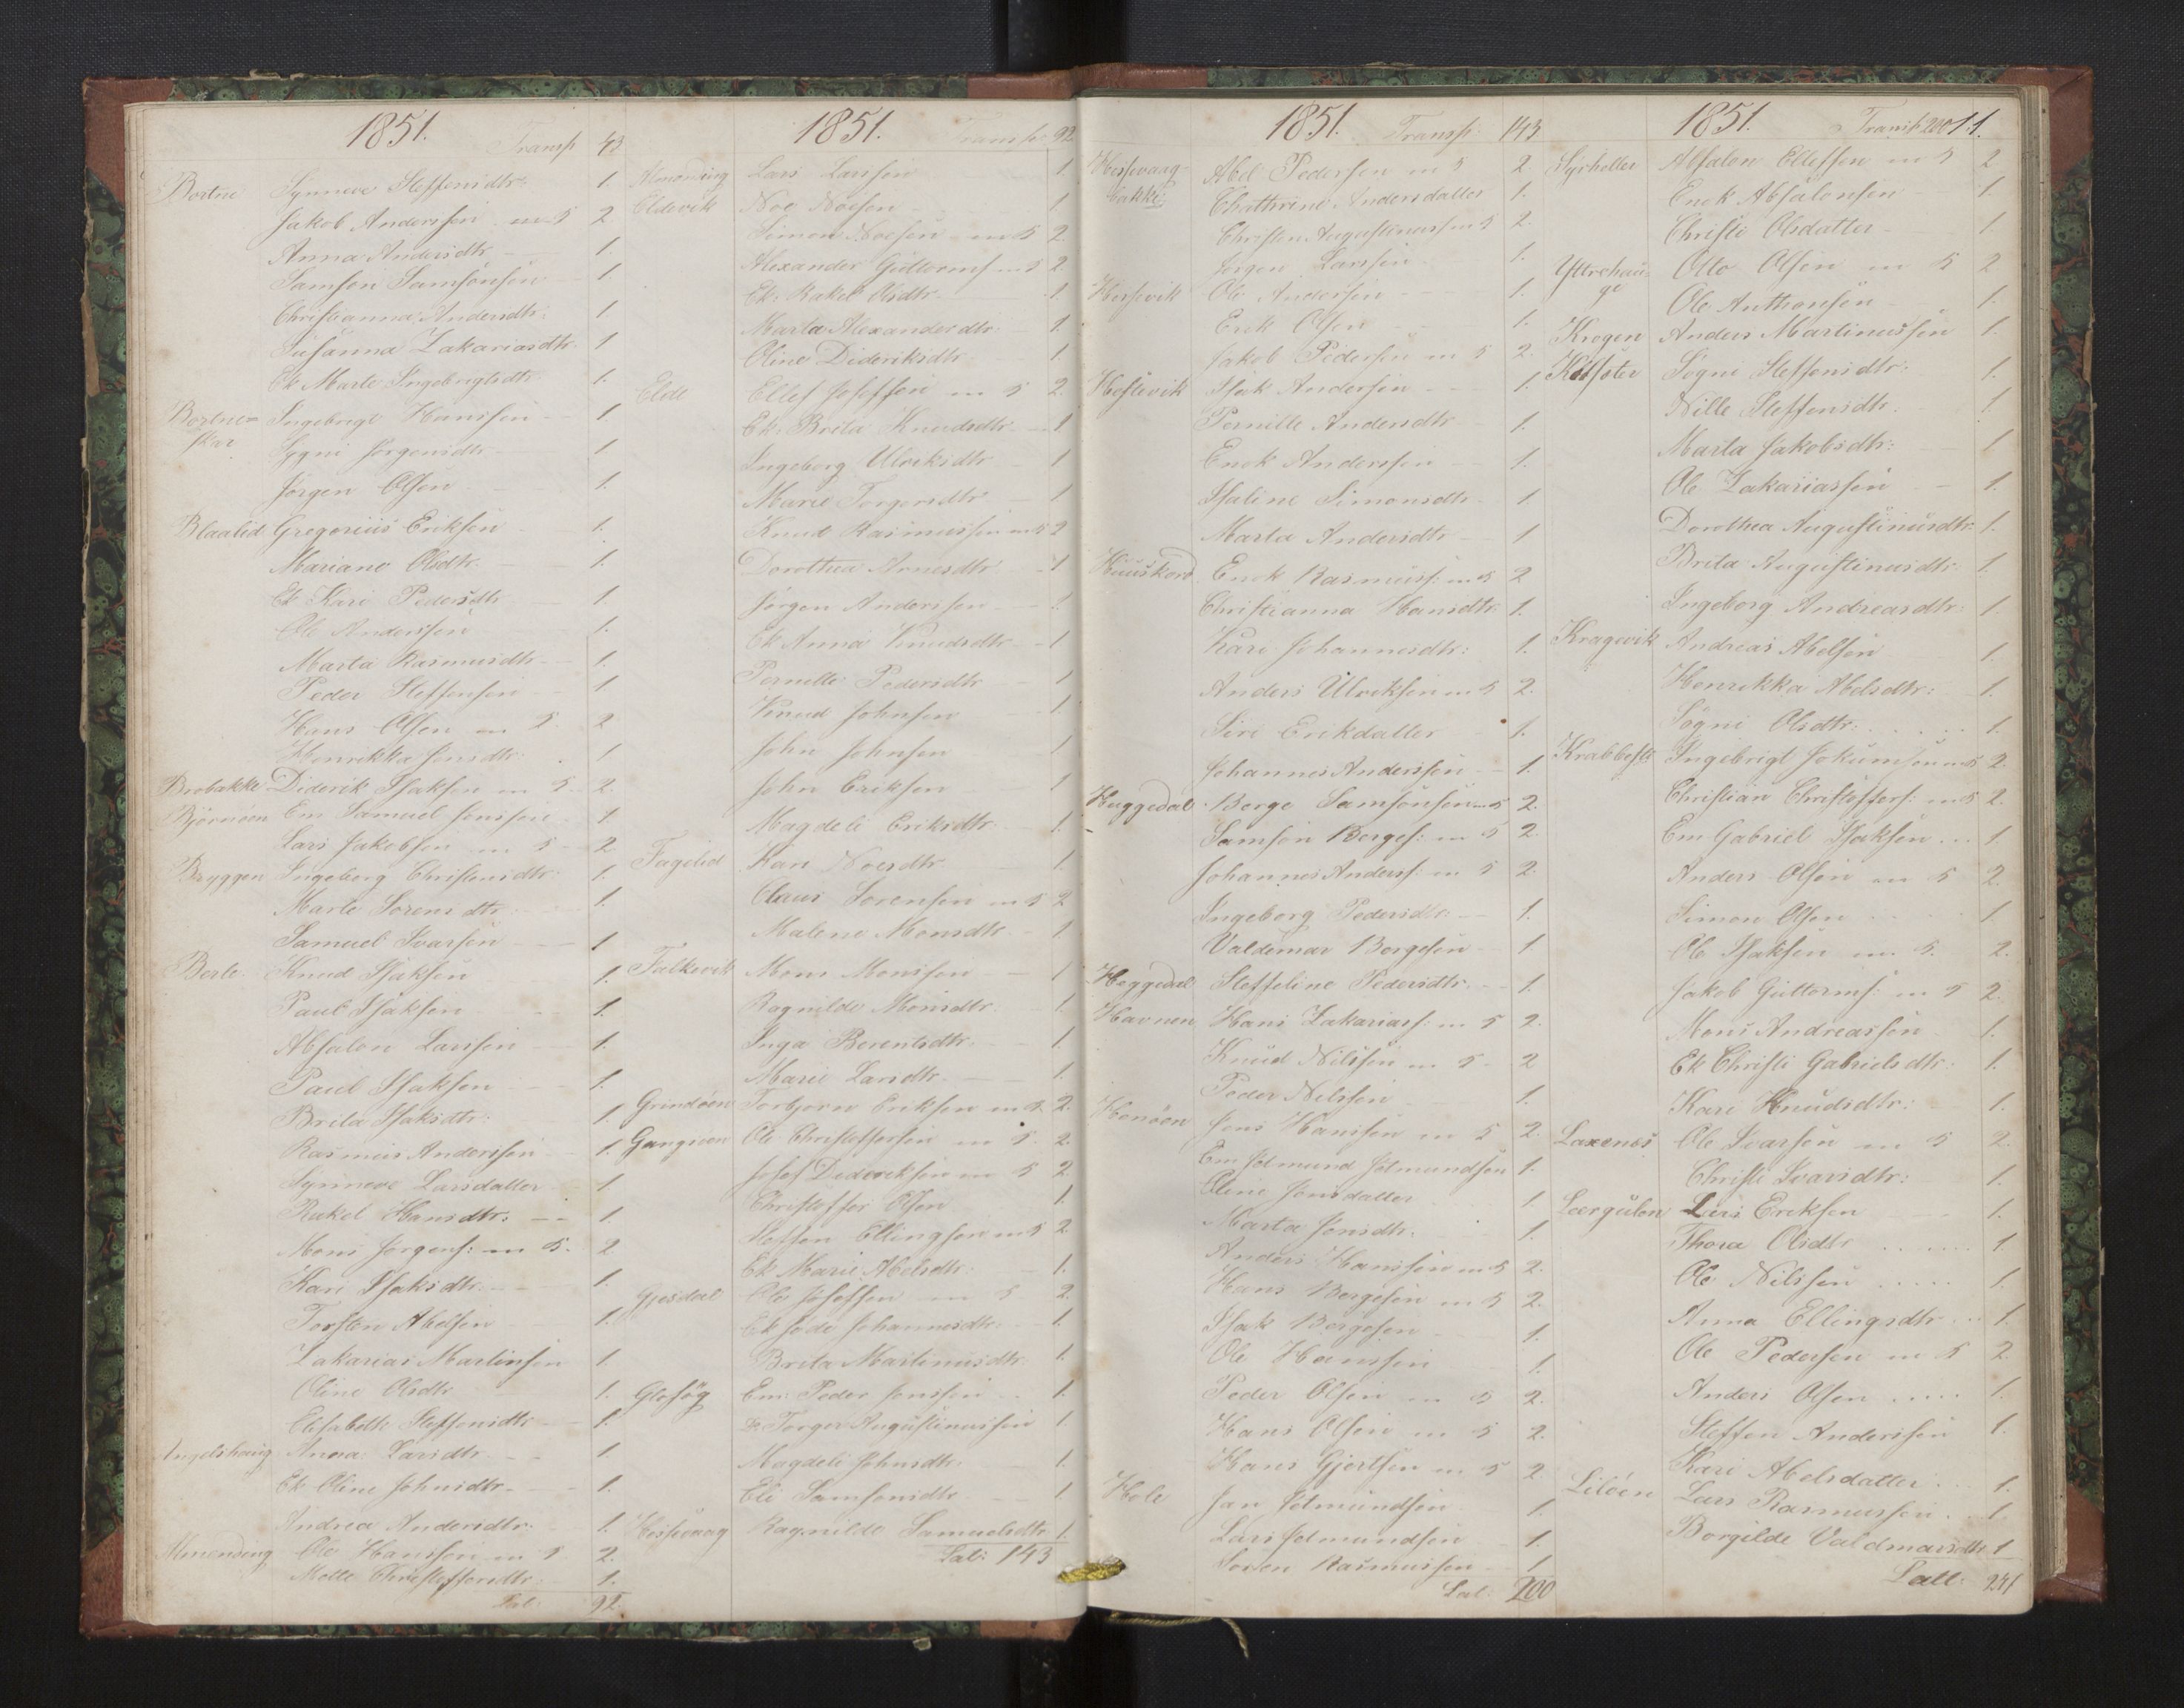 1851.
Transp 43
Bortne Synneve Steffensdtr. 1.
Jakob Anderssen m 5 2
Anna Andersdtr 1.
Samson Samsonsen 1.
Christianna Andersdtr. 1
Susanna Zakariasdtr. 1
Ek Marte Ingebrigtsdtr. 1.
Bortne= Ingebrigt Hanssen 1.
skar Sygni Jørgensdtr 1
Jørgen Olsen 1.
Blaalid Gregorius Eriksen 1.
Mariane Olsdtr. 1.
Ek Kari Pedersdtr 1.
Ole Anderssen 1.
Marta Rasmusdtr 1.
Peder Steffensen 1
Hans Olsen m 5. 2
Henrikka Jensdtr. 1
Brobakke Diderik Isaksen m 5. 2.
Bjørnøen Em Samuel Jenssen 1
Lars Jakobsen m 5 2
Bryggen Ingeborg Christensdtr. 1.
Marte Sørensdtr 1.
Samuel Ivarsen 1
Berle Knud Isaksen 1.
Paul Isaksen 1.
Absalon Larssen 1.
Paul Isaksen 1.
Brita Isaksdtr. 1
Rasmus Anderssen 1.
Synneve Larsdatter 1
Rakel Hansdtr. 1.
Mons Jørgens: m 5. 2
Kari Isaksdtr. 1.
Torsten Abelsen 1.
Zakarias Martinsen 1.
Oline Olsdtr 1.
Elisabeth Steffensdtr 1.
Angelshaug Anna Larsdtr. 1
Ek Oline Johnsdtr. 1.
Andrea Andersdtr. 1.
Almending Ole Hanssen m 5 2.
Mette Christoffersdtr. 1.
Lat. 92.
1851.
Transp: 92
Almending Lars Larssen 1
Eldevik Noe Noesen 1.
Simon Noesen m 5 2.
Alexander Guttorms m 5 2
Ek. Rakel Olsdtr. 1
Marta Alexandersdtr. 1.
Oline Dideriksdtr 1.
Elde Ellef Joseffsen m 5 2.
Ek. Brita Knudsdtr. 1
Ingeborg Ulriksdtr 1
Marie Torgersdtr 1
Knud Rasmussen m 5 2
Dorothea Arnesdtr 1
Jørgen Anderssen 1
Ek Anna Knudsdtr. 1
Pernille Pedersdtr 1
Knud Johnsen 1.
John Johnsen 1
John Eriksen 1
Magdeli Eriksdtr. 1.
Fagelid Kari Noesdtr 1.
Claus Sørensen m 5 2
Malene Monsdtr. 1
Falkevik Mons Monssen 1
Ragnilde Monsdtr. 1.
Inga Berentsdtr. 1.
Marie Larsdtr. 1.
Grindøen Torbjørn Eriksen m 5. 2.
Gangsøen Ole Christoffersen m 5. 2.
Josef Dideriksen m 5 2
Christoffer Olsen 1.
Steffen Ellingsen m 5 2
Ek Marie Abelsdtr. 1.
Gjesdal Ole Joseffsen m 5 2.
Ek Johannesdtr. 1.
Brita Martinusdtr. 1.
Em: Peder Jenssen 1.
Torger Augustinussen 1.
Magdeli Johnsdtr. 1.
Eli Samsonsdtr 1.
Hessevaag Ragnilde Samuelsdtr 1.
Lat: 143
1851.
Transp. 143
Hessevaag- Abel Pedersen m 5 2.
bakke: Chathrine Andersdatter 1.
Christen Augustinuss m 5 2.
Jørgen Larssen 1.
Hessevik Ole Andersen 1.
Erik Olsen 1.
Jakob Pedersen m 5 2.
Hestevik Isak Andersen 1.
Pernille Andersdtr 1.
Enok Anderssen 1.
Isaline Simonsdtr. 1
Marta Andersdtr 1
Enok Rasmuss: m 5 2
Christianna Hansdtr. 1.
Kari Johannesdtr: 1.
Anders Ulriksen m 5 2.
Siri Erikdatter 1.
Johannes Anderssen 1.
Huggedal Børge Samsonsen m 5 2.
Samson Børges: m 5 2.
Johannes Anderss: m 5 2.
Ingeborg Pedersdtr. 1.
Valdemar Børgesen 1.
Heggedal Steffeline Pedersdtr. 1.
Havnen Hans Zakariass: m 5 2.
Knud Nilssen m 5 2
Peder Nilssen 1.
Henøen Jens Hanssen m 5 2.
Em Jetmund Jetmundsen 1.
Oline Jensdatter 1.
Marta Jensdtr. 1.
Anders Hanssen m 5 2.
Hans Børgesen m 5 2.
Isak Børgesen 1.
Ole Hanssen 1.
Peder Olsen m 5 2.
Hans Olsen m 5 2.
Hans Gjertsen m 5 2
Hole Jan Jetmundsen 1.
Lars Jetmundsen 1.
Søren Rasmussen 1
Lat. 200
1851.
Transp 200 1.1.
Hyrheller Absalon Ellefsen m 5 2
Enok Absalonsen 1
Christi Olsdatter 1
Ytterhau= Otto Olsen m 5 2
ge Ole Anthonsen 1.
Krogen Anders Martinussen 1.
Sogni Steffensdtr. 1.
Nille Steffensdtr. 1
Marta Jakobsdtr: 1
Ole Zakariassen 1.
Dorothea Augustinusdtr. 1.
Brita Augustinusdtr. 1.
Ingeborg Andreasdtr. 1.
Kragevik Andreas Abelsen 1.
Henrikka Abelsdtr: 1.
Søgni Olsdtr: 1.
Krabbeste Ingebrigt Jokumsen m 5 2.
Christian Christoffers: m 5 2.
Em Gabriel Isaksen 1
Anders Olsen m 5 2.
Simon Olsen 1
Ole Isaksen m 5. 2.
Jakob Guttorms: m 5 2
Mons Andreassen 1.
Ek Christi Gabrielsdtr. 1.
Kari Knudsdtr. 1.
Laxenes Ole Ivarsen m 5 2.
Christi Ivarsdtr: 1.
Leergulen Lars Eriksen 1.
Thora Olsdtr 1
Ole Nilssen 1
Anna Ellingsdtr 1.
Ole Pedersen m 5 2
Anders Olsen 1.
Steffen Anderssen 1.
Kari Abelsdatter 1.
Liløen Lars Rasmussen 1
Borgilde Valdmarsdtr. 1
Latt. 241